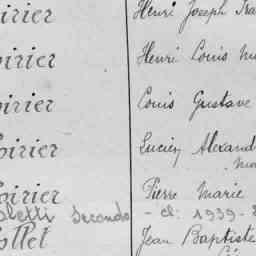 oirier Henri Joseph
oirier Henri Louis
oirier Louis Gustave
oirier Lucien Alexand
oirier Pierre Marie
oletti Secondo - cl: 1939-
ollet Jean Baptiste